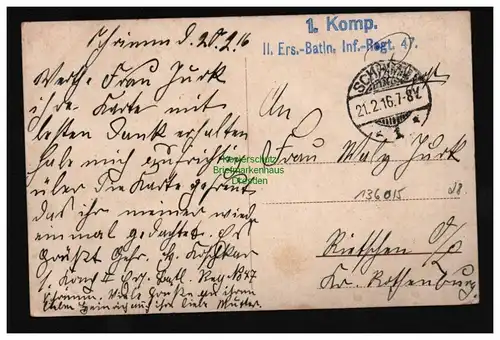 Schrimm d. 20.2.16
1. Komp.
II. Ers.-Batln. Inf.-Regt. 47.
SCHRIMM
21.2.16.7-8V.
* 1 *
Werthe Frau Jurk
ihre Karte mit
besten Dank erhalten
habe mich aufrichtig
über die Karte gefreut
das ihr meiner wieder
einmal gedachtet. Es
grüßt
1. Komp II Ers. Batl. Reg No 47
Schrimm. Viele Grüße an ihren
lieben Heinrich auch ihre liebe Mutter.
An
Frau Jurk
Rietschen O/L
Kr. Rothenburg.
136015
Kartenschutz
Briefmarkenhaus
Dresden